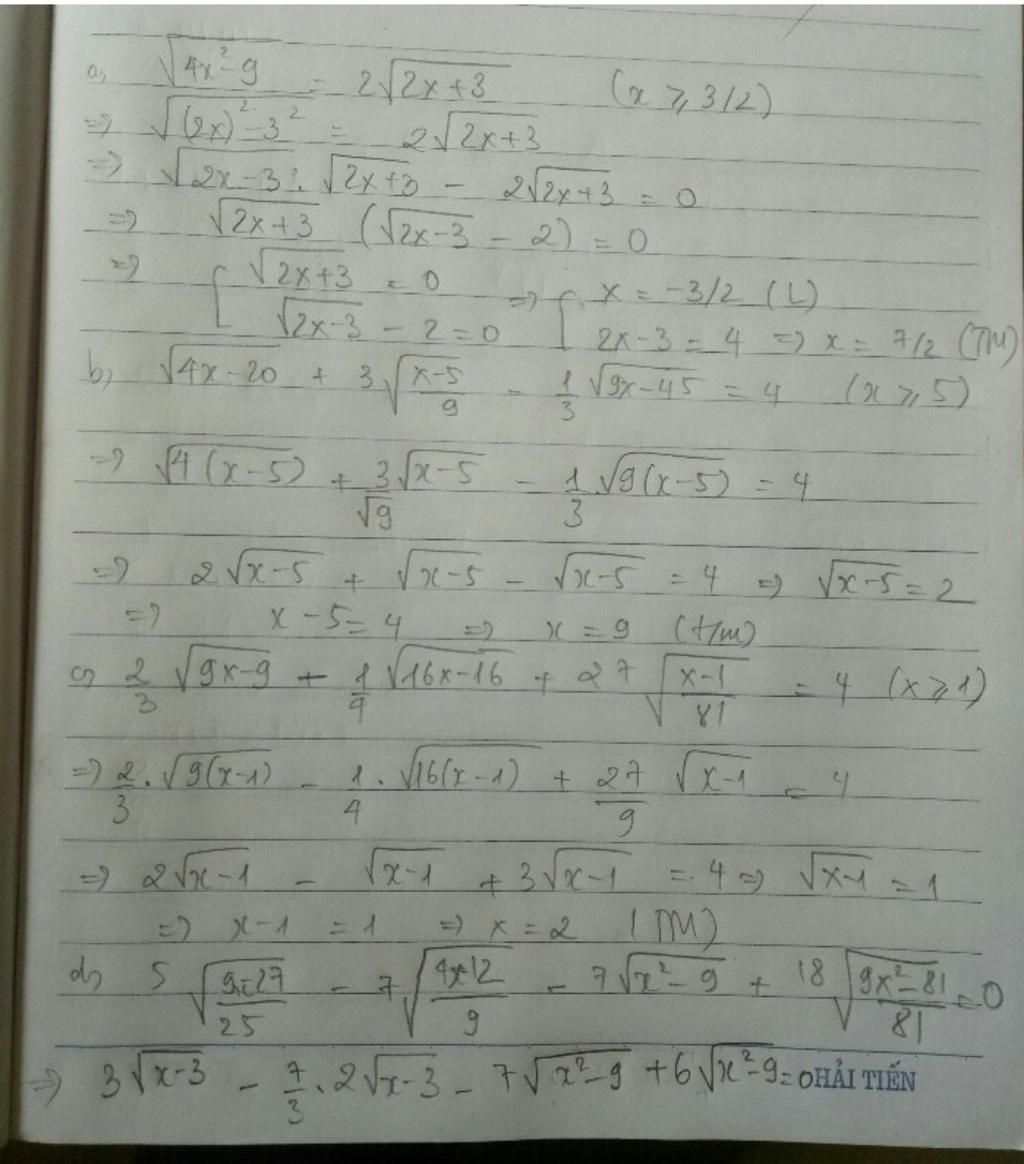 a, √(4x²-9) = 2√(2x+3) (x ⩾ 3/2)
=> √((2x)²-3²) = 2√(2x+3)
=> √(2x-3) . √(2x+3) - 2√(2x+3) = 0
=> √(2x+3) (√(2x-3) - 2) = 0
=> [ √(2x+3) = 0 => [ x = -3/2 (L)
√(2x-3) - 2 = 0 2x-3 = 4 => x = 7/2 (TM)
b, √(4x-20) + 3√((x-5)/9) - 1/3 √(9x-45) = 4 (x ⩾ 5)
=> √(4(x-5)) + 3√(x-5)/√9 - 1/3 . √(9(x-5)) = 4
=> 2√(x-5) + √(x-5) - √(x-5) = 4 => √(x-5) = 2
=> x-5 = 4 => x = 9 (t/m)
c, 2/3 √(9x-9) - 1/4 √(16x-16) + 27 √((x-1)/81) = 4 (x ⩾ 1)
=> 2/3 . √(9(x-1)) - 1/4 . √(16(x-1)) + 27/9 √(x-1) = 4
=> 2√(x-1) - √(x-1) + 3√(x-1) = 4 => √(x-1) = 1
=> x-1 = 1 => x = 2 (TM)
d, 5 √((9x-27)/25) - 7 √((4x-12)/9) - 7√(x²-9) + 18 √((9x²-81)/81) = 0
=> 3√(x-3) - 7/3 . 2√(x-3) - 7√(x²-9) + 6√(x²-9) = 0 HẢI TIẾN